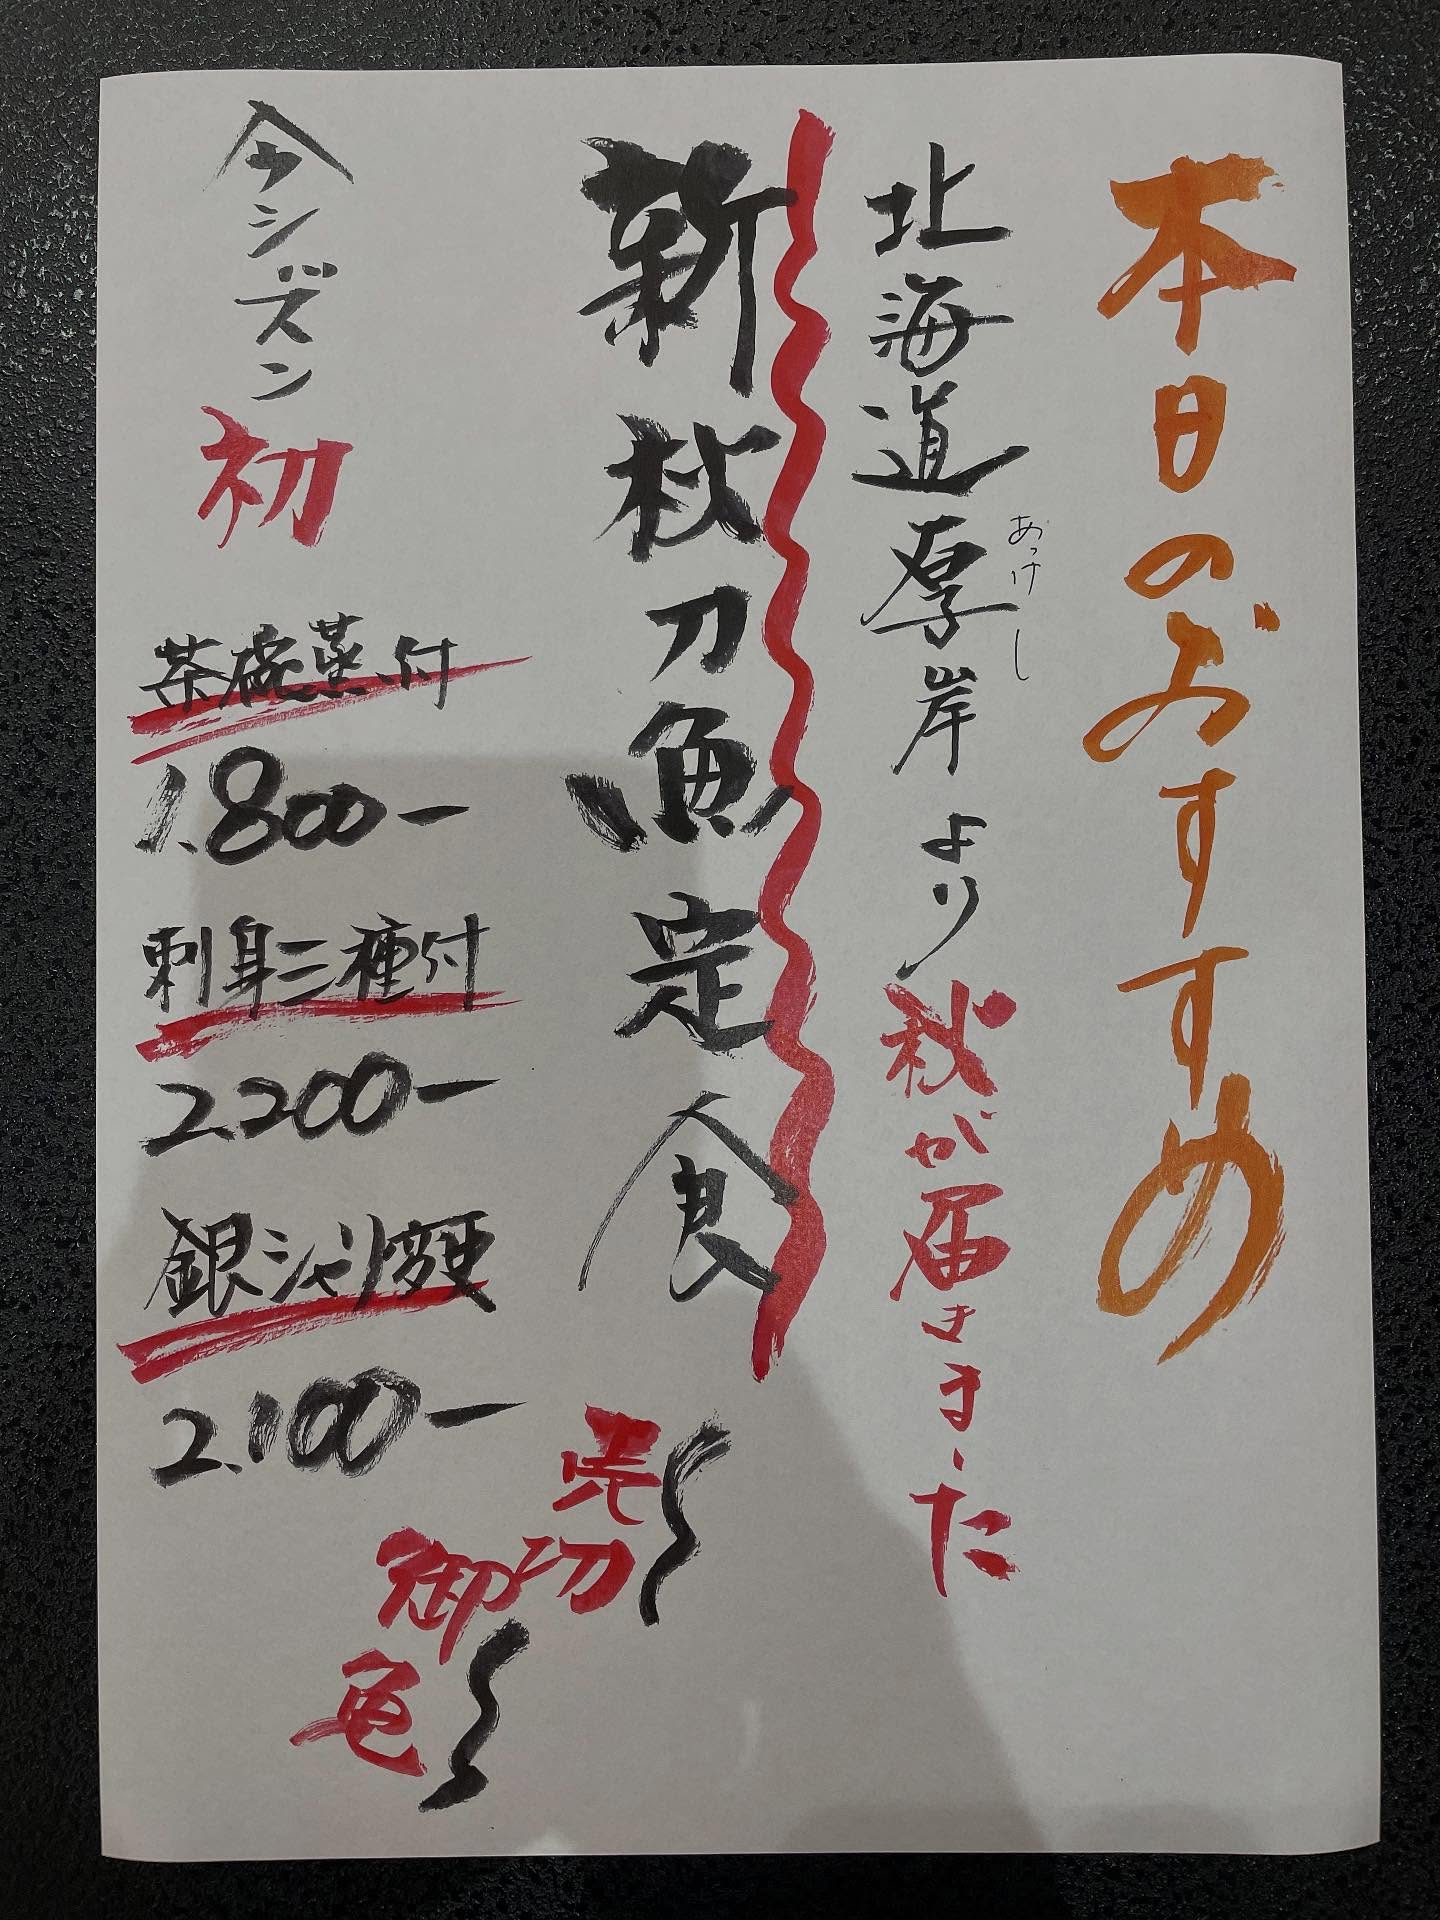 本日のおすすめ
北海道厚岸より秋が届きました
あっけし
新秋刀魚定食
今シーズン初
茶碗蒸付
1.800ー
刺身三種付
2.200ー
銀シャリ変更
2.100ー
売切
御免